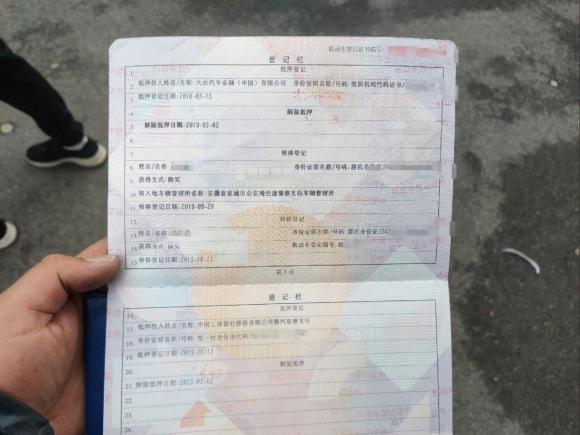 机动车登记证书编号:
登记栏
1. 抵押登记
2. 抵押权人姓名/名称:大众汽车金融(中国)有限公司 身份证明名称/号码:组织机构代码证书/
3. 抵押登记日期:2016-03-15
4. 解除抵押
5. 解除抵押日期:2019-03-05
6.
7. 转移登记
8. 姓名/名称 身份证明名称/号码:居民
9. 获得方式:购买
10. 转入地车辆管理所名称:安徽省宣城市公安局交通警察支队车辆管理所
11. 转移登记日期:2019-09-20
12. 转移登记
13. 姓名/名称: 身份证明名称/号码:居民身份证/342
14. 获得方式:购买 机动车登记编号:皖
15. 转移登记日期:2019-10-11
第3页
登记栏
16. 抵押登记
17. 抵押权人姓名/名称:中国工商银行股份有限公司滁州琅琊支行
18. 身份证明名称/号码:统一社会信用代码/
19. 抵押登记日期:2019-11-13
20. 解除抵押
21. 解除抵押日期:2023-03-02
22.
23.
24.